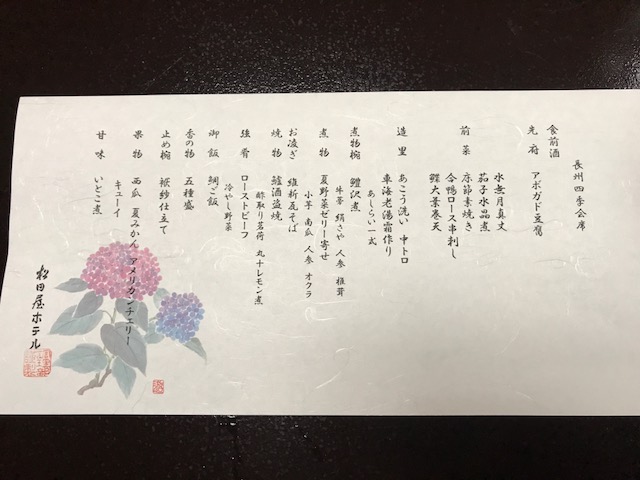 長州四季会席
食前酒
先府 アボガド豆腐
前菜 水無月真丈
茄子水晶煮
床節素焼き
合鴨ロース串刺し
鱚大葉巻天
造里 あこう洗い 中トロ
車海老湯霜作り
あしらい一式
煮物椀 鱧沢煮
牛蒡 絹さや 人参 椎茸
煮物 夏野菜ゼリー寄せ
小芋 南瓜 人参 オクラ
お凌ぎ 維新瓦そば
焼物 鱸酒盗焼
酢取り茗荷 丸十レモン煮
強肴 ローストビーフ
冷やし野菜
御飯 鯛ご飯
香の物 五種盛
止め椀 袱紗仕立て
果物 西瓜 夏みかん アメリカンチェリー
キューイ
甘味 いとこ煮
松田屋ホテル